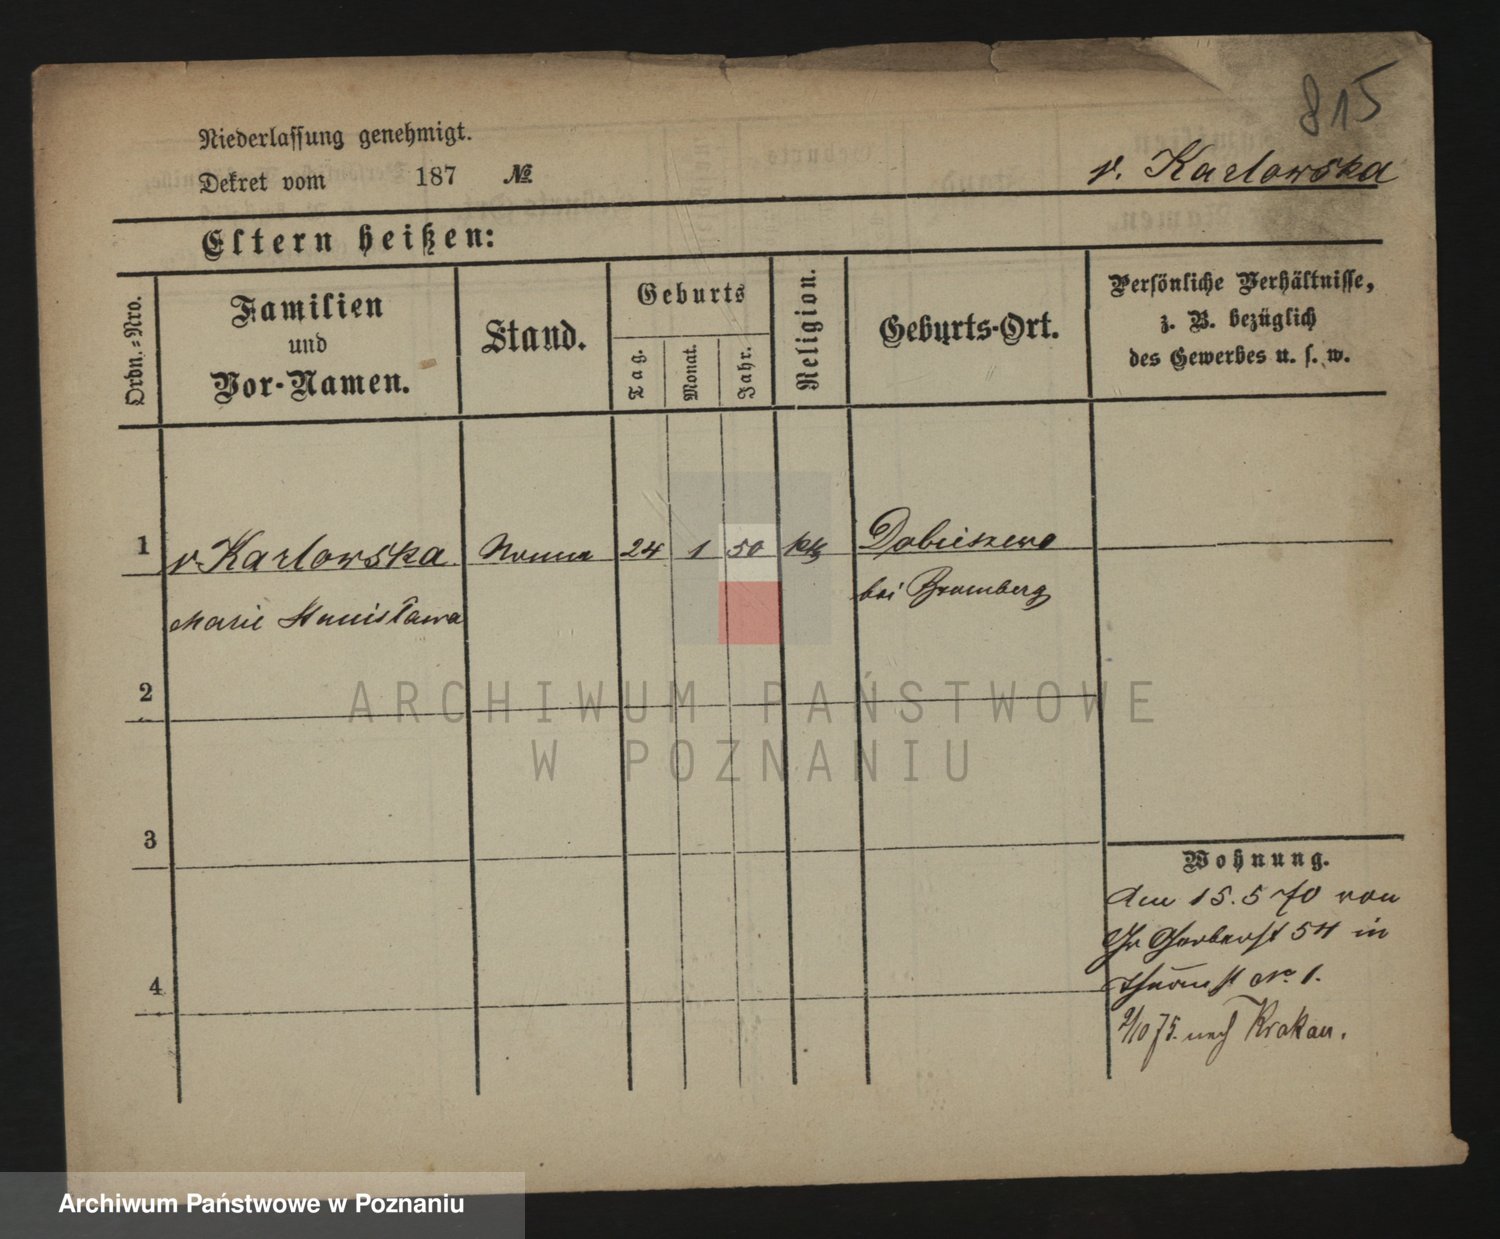 815
Niederlassung genehmigt.
Dekret vom 187 №
v. Karlowska
Eltern heißen:
Ordn.-Nro.
Familien
und
Vor-Namen.
Stand.
Geburts
Tag.
Monat.
Jahr.
Religion.
Geburts-Ort.
Persönliche Verhältnisse,
z. B. bezüglich
des Gewerbes u. s. w.
1 v. Karlowska Nonne 24 1 50 kth Dobieszewo
Marie Stanisława bei Bromberg
2
3
4
Wohnung.
Am 15.5 70 von
Gr Gerberst 54 in
No 1.
2/10 75. nach Krakau.
ARCHIWUM PAŃSTWOWE
W POZNANIU
Archiwum Państwowe w Poznaniu